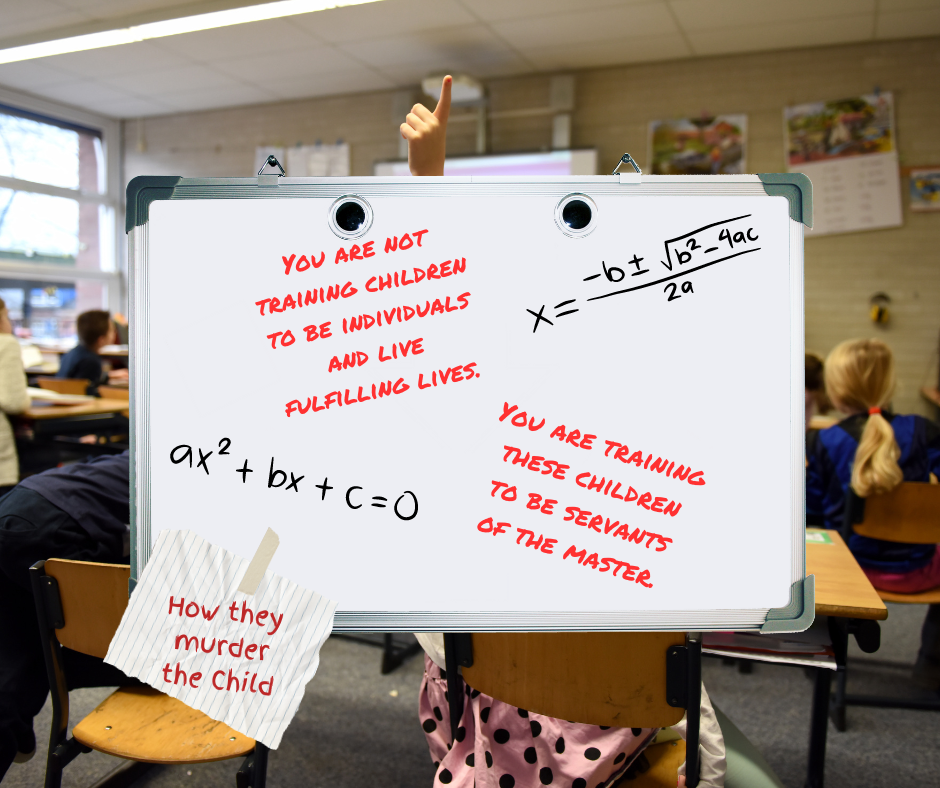 You are not
training children
to be individuals
and live
fulfilling lives.
x = (-b ± √(b² - 4ac)) / 2a
ax² + bx + c = 0
You are training
these children
to be servants
of the master.
How they
murder
the Child